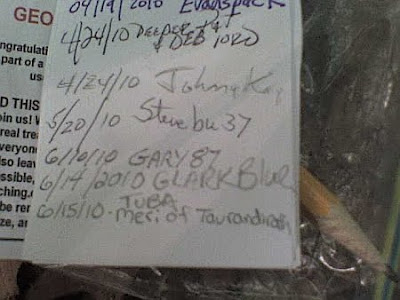 GEO
ongratulati
part of a
us
D THIS
oin us! W
real trea
everyone
lso leav
ossible,
ching.
be rer
ze, ar
04/19/2010 Evanspack
4/24/10 Deeper
& DEB 1020
4/24/10 Johnny Kay
5/20/10 Stevebu37
6/10/10 GARY87
6/14/2010 GLARKBlue
TUBA
6/15/10 - Meri of Taurandir